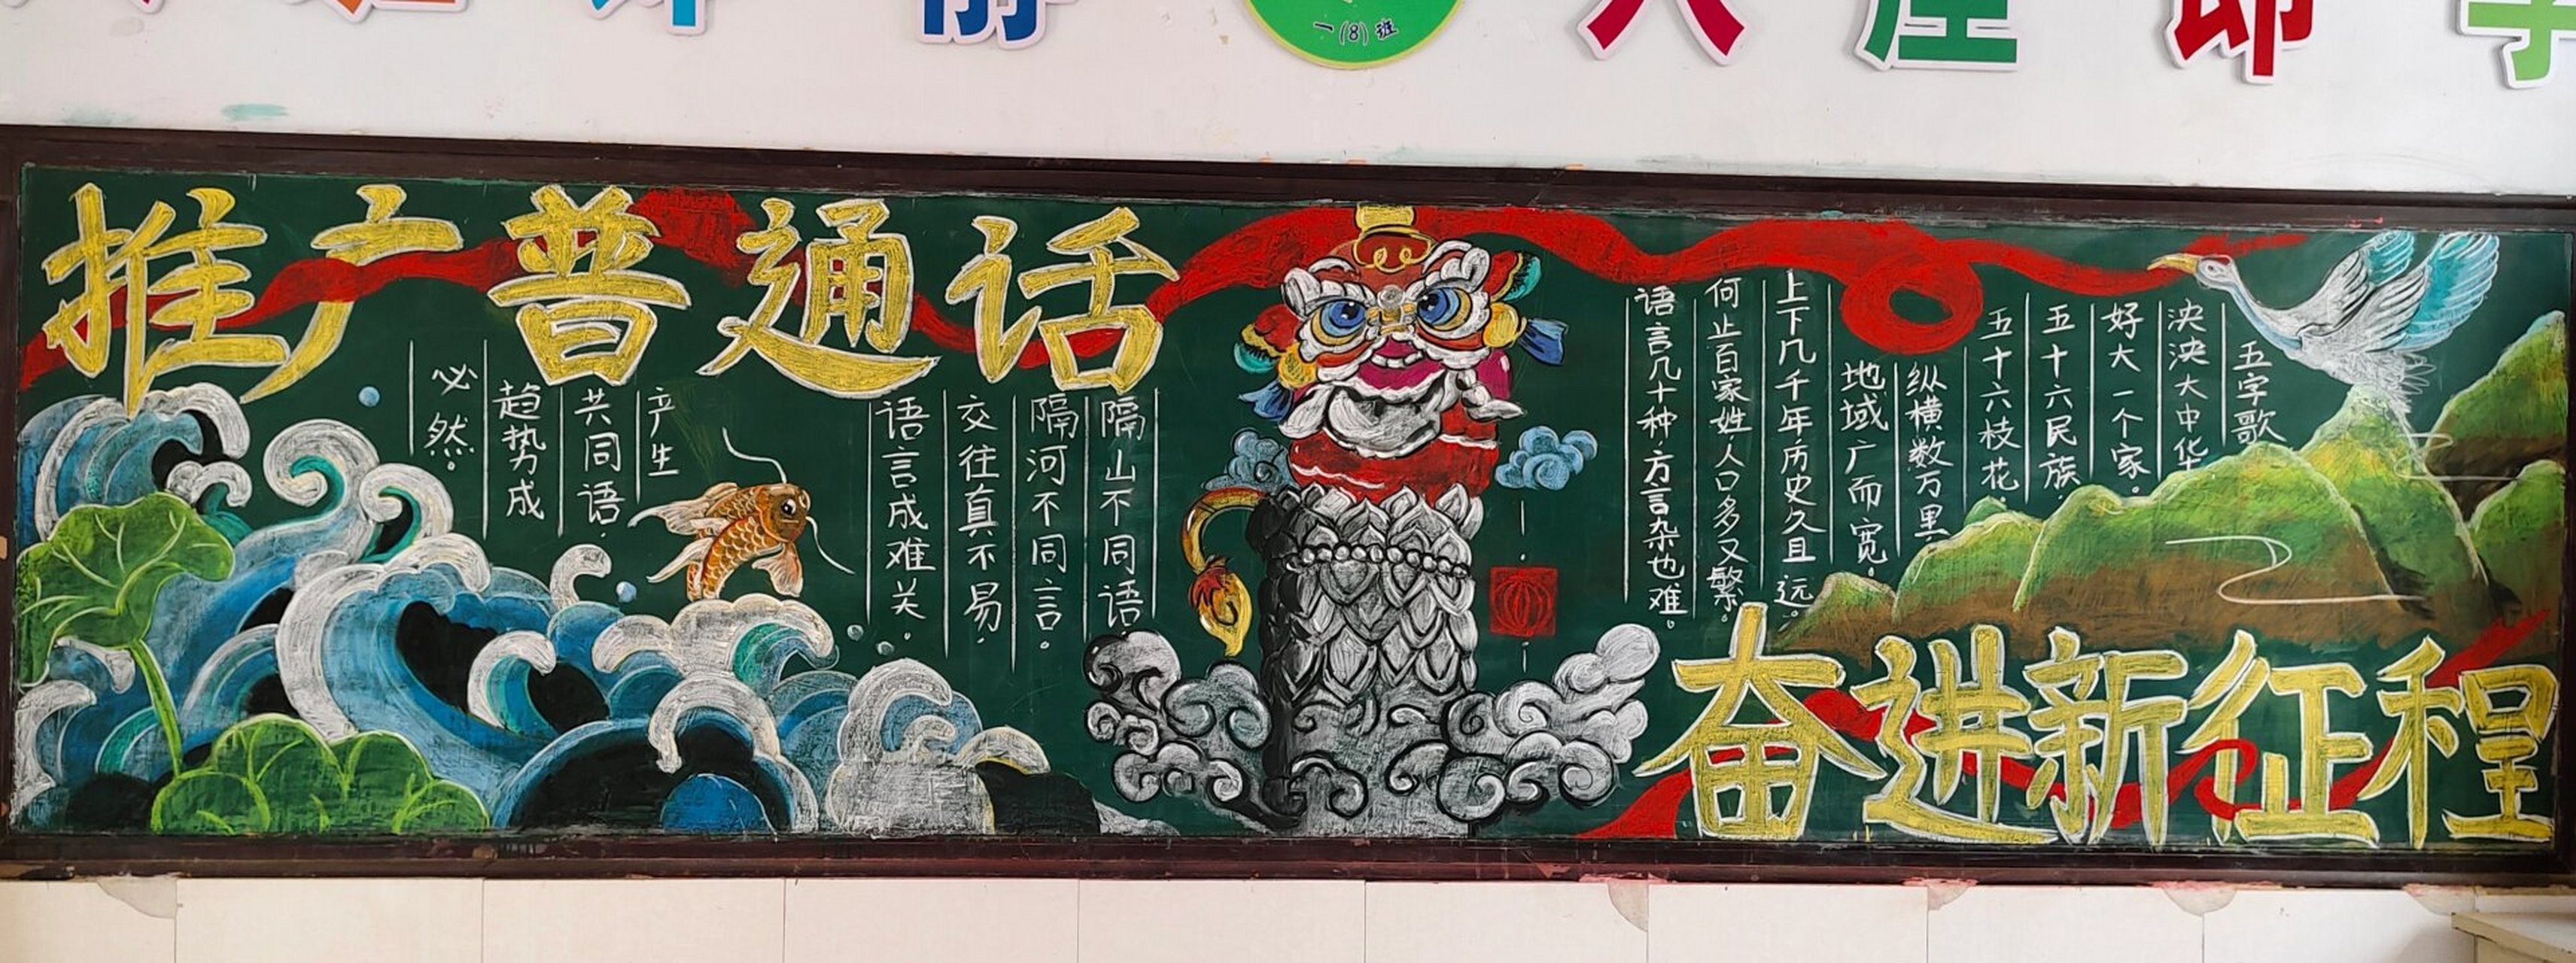 一(8)班
入座即学
推广普通话
五字歌
泱泱大中华
好大一个家。
五十六民族,
五十六枝花。
纵横数万里
地域广而宽。
上下几千年历史久且远。
何止百家姓,人口多又繁。
语言几十种,方言杂也难。
隔山不同语
隔河不同言。
交往真不易,
语言成难关。
产生
共同语,
趋势成
必然。
奋进新征程